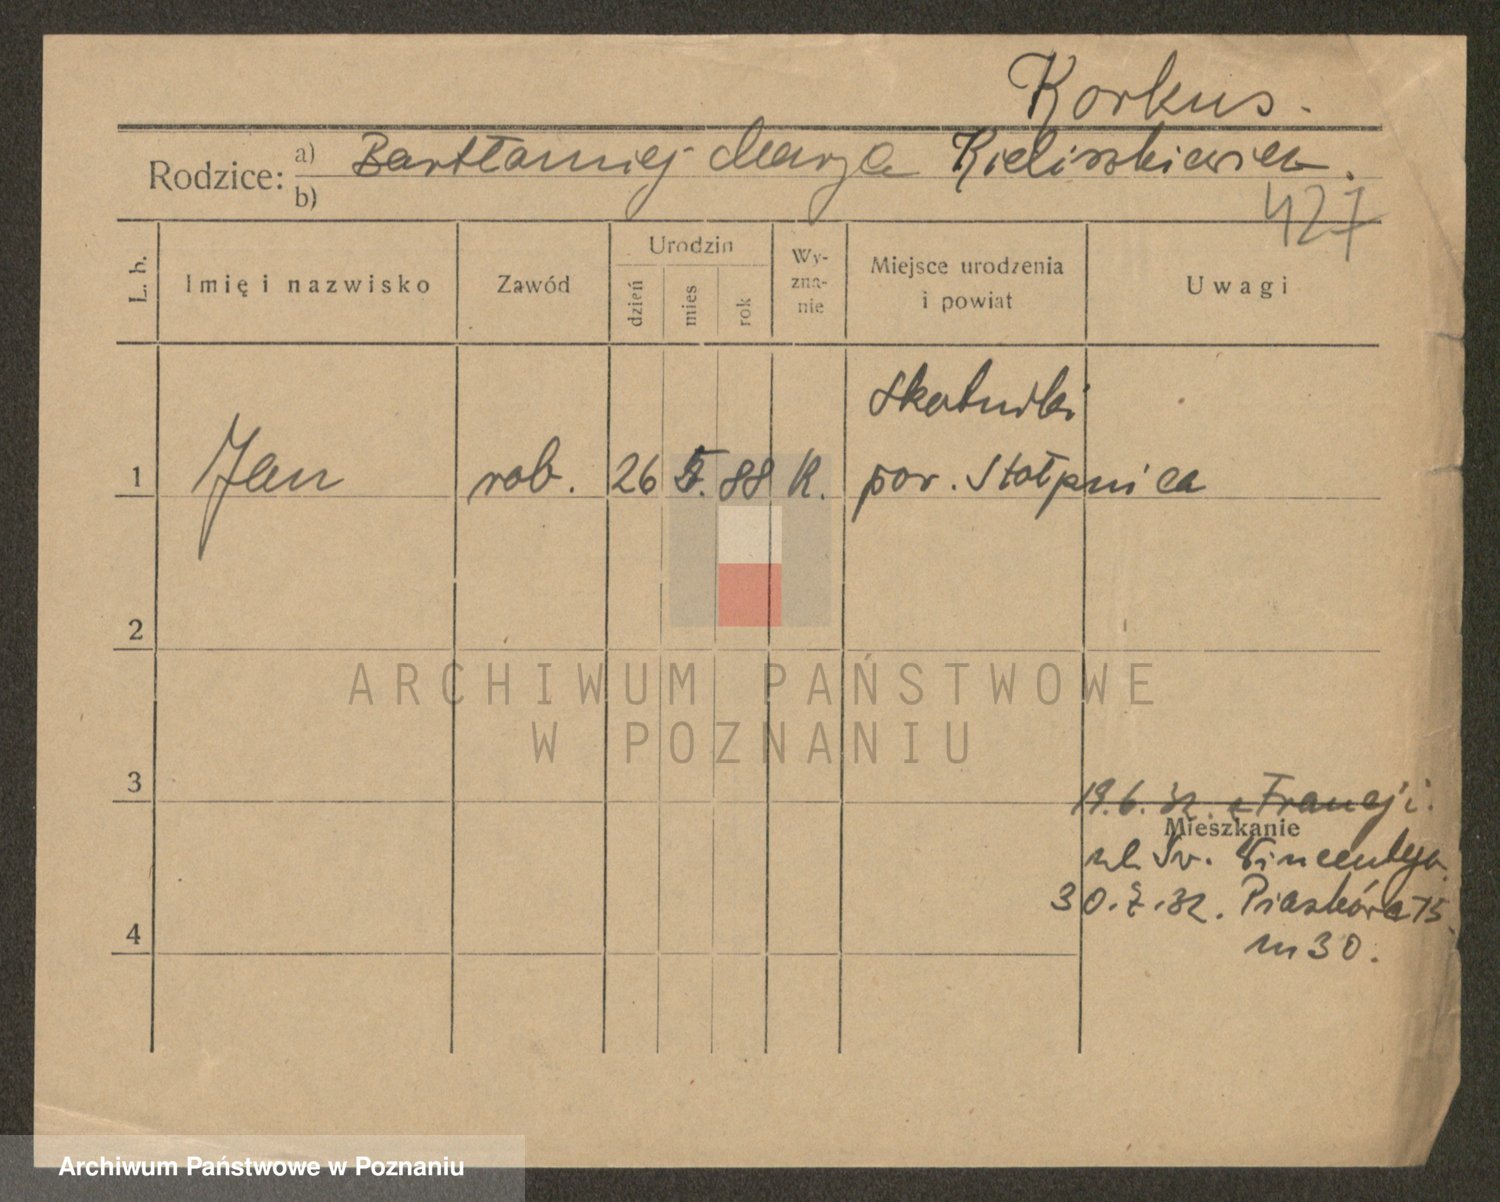 Korkus.
Rodzice: a) Bartłomiej Marya Kieliszkiewicz.
b)
427
L. b.
Imię i nazwisko
Zawód
Urodzin
dzień
mies
rok
Wy-
zna-
nie
Miejsce urodzenia
i powiat
Uwagi
Skotniki
1 Jan rob. 26 5. 88 K. pow. Stopnica
2
ARCHIWUM PAŃSTWOWE
W POZNANIU
3
19.6.32. z Francji.
Mieszkanie
ul. Św. Wincentego
30. .32. Piaskowa 75
4
m 30.
Archiwum Państwowe w Poznaniu